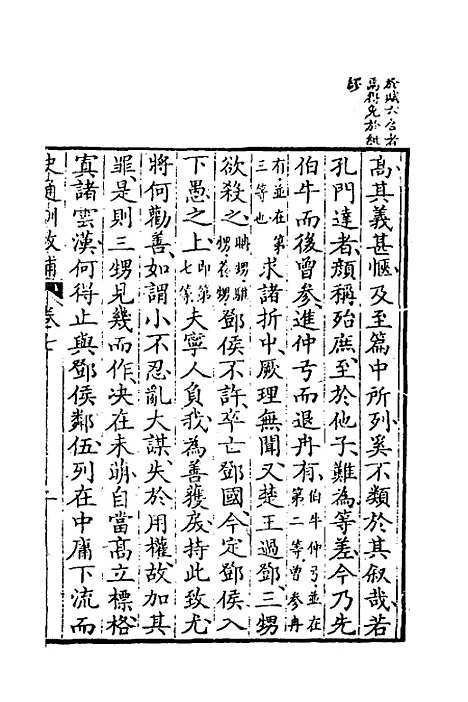 於賊六合者
馬得免於
高其義甚愜及至篇中所列奚不類於其叙哉若
孔門達者顔稱殆庶至於他子難為等差今乃先
伯牛而後曾參進仲弓而退冉有伯牛仲弓並在第二等曾參冉
有並在第三等也求諸折中厥理無聞又楚王過鄧三甥
欲殺之聃甥騅甥養甥鄧侯不許卒亡鄧國今定鄧侯入
下愚之上即第七等夫寧人負我為善獲戾持此致尤
將何勸善如謂小不忍亂大謀失於用權故加其
罪是則三甥見幾而作決在未萌自當高立標格
寘諸雲漢何得止與鄧侯鄰伍列在中庸下流而
史通訓故補 卷七